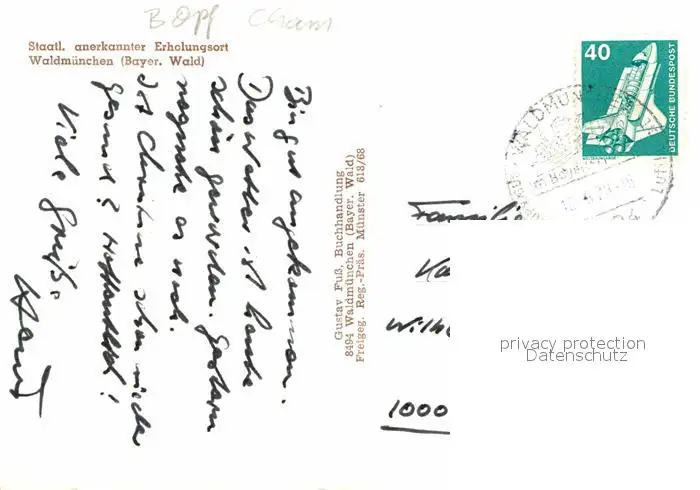 BOpf Cham
Staatl. anerkannter Erholungsort
Waldmünchen (Bayer. Wald)
Bin gut angekommen.
Das Wetter ist heute
schön geworden. Gestern
regnete es noch.
Ist Christine schon wieder
gesund? Hoffentlich!
Viele Grüße
Gustav Fuß, Buchhandlung
8494 Waldmünchen (Bayer. Wald)
Freigeg. Reg.-Präs. Münster 618/68
40
DEUTSCHE BUNDESPOST
WALDMÜN
Familie
Wilh
1000
privacy protection
Datenschutz